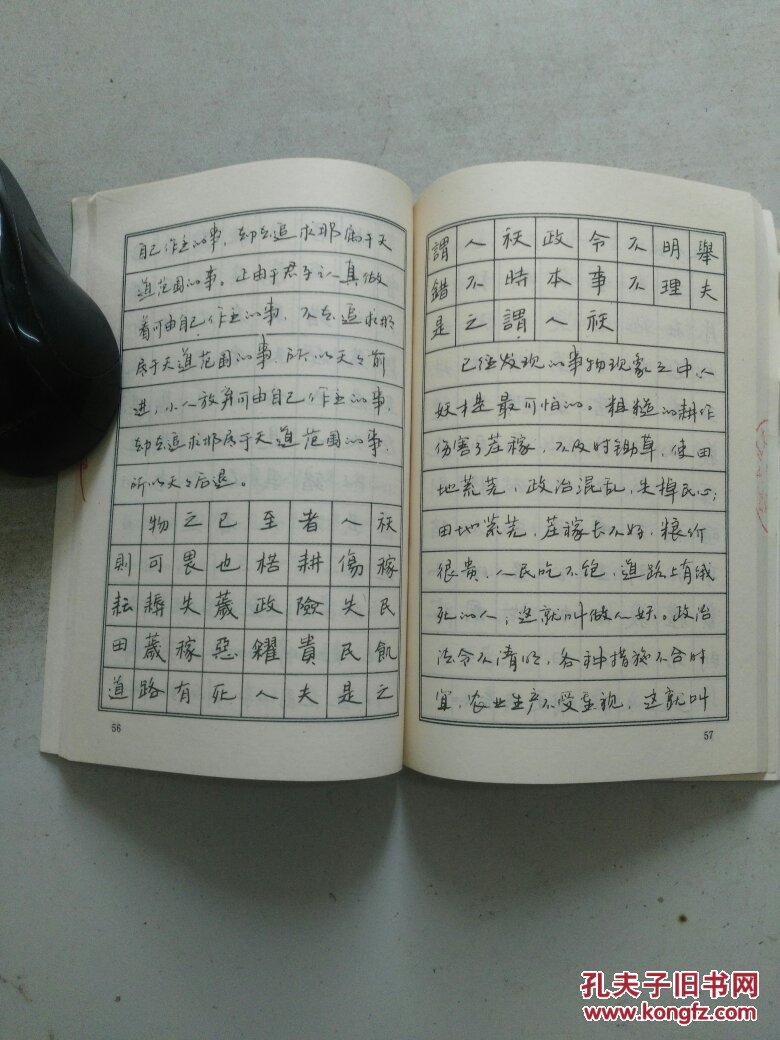 自己作主的事，却去追求那属于天
道范围的事。正由于君子认真做
着可由自己作主的事，不去追求那
属于天道范围的事，所以天天前
进，小人放弃可由自己作主的事，
却去追求那属于天道范围的事，
所以天天后退。
物之已至者人祅
則可畏也楛耕傷稼
耘耨失薉政險失民
田薉稼惡糴貴民飢
道路有死人夫是之
56
謂人祅政令不明舉
錯不時本事不理夫
是之謂人祅
已经发现的事物现象之中，人
妖才是最可怕的。粗糙的耕作
伤害了庄稼，不及时锄草，使田
地荒芜，政治混乱，失掉民心；
田地荒芜，庄稼长不好，粮价
很贵，人民吃不饱，道路上有饿
死的人，这就叫做人妖。政治
法令不清明，各种措施不合时
宜，农业生产不受重视，这就叫
57
孔夫子旧书网
www.kongfz.com